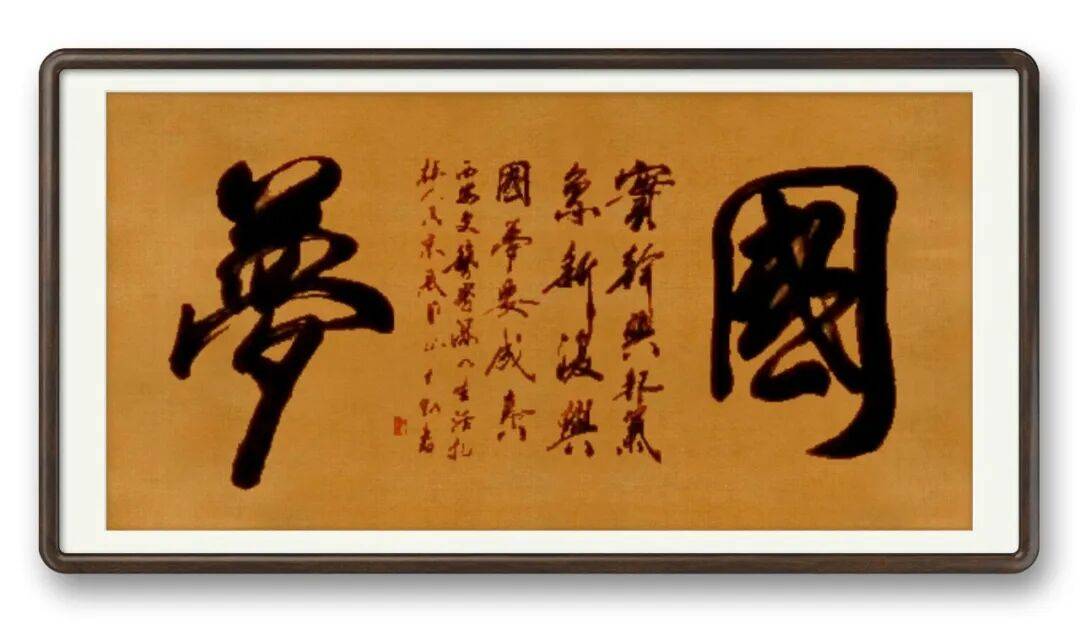 國
實幹興邦氣
象新復興
國夢要成真
西安文藝界深入生活扎
根人民采風
夢